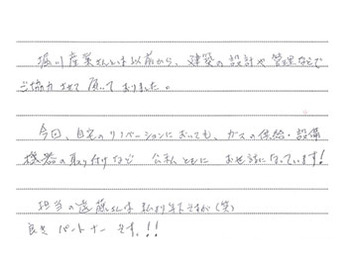 堀川産業さんとは以前から、建築の設計や管理などで
ご協力させて頂いておりました。
今回、自宅のリノベーションにおいても、ガスの供給・設備
機器の取り付けなど 公私ともに お世話になっています!
担当の遠藤さんは私より年下ですが(笑)
良きパートナーです。!!